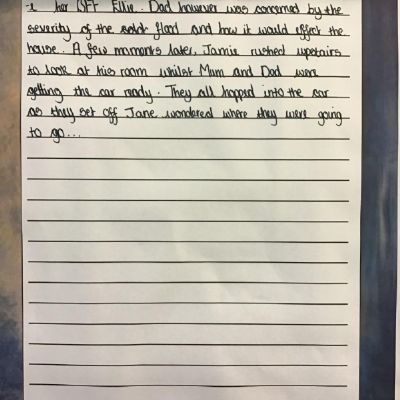 her BFF Ellie. Dad however was concerned by the
severity of the flood and how it would effect the
house. A few moments later, Jamie rushed upstairs
to look at his room whilst Mum and Dad were
getting the car ready. They all hopped into the car
as they set off Jane wondered where they were going
to go...